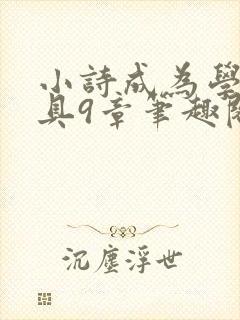 小詩成為學
具9章筆趣
沉塵浮世